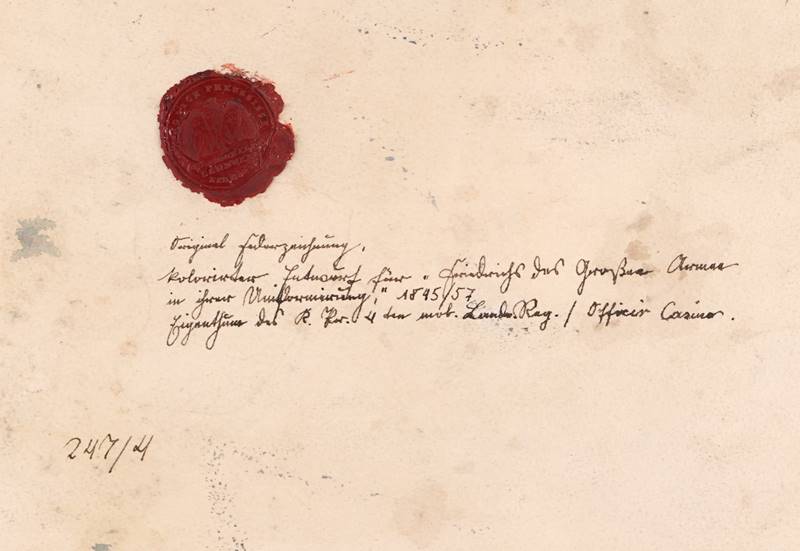 Original Federzeichnung,
kolorierter Entwurf für „Friedrichs des Großen Armee
in ihrer Uniformierung," 1845/57
Eigenthum des K. Pr. 4 ten mob. Landw. Reg. / Officir Casino.
247/4